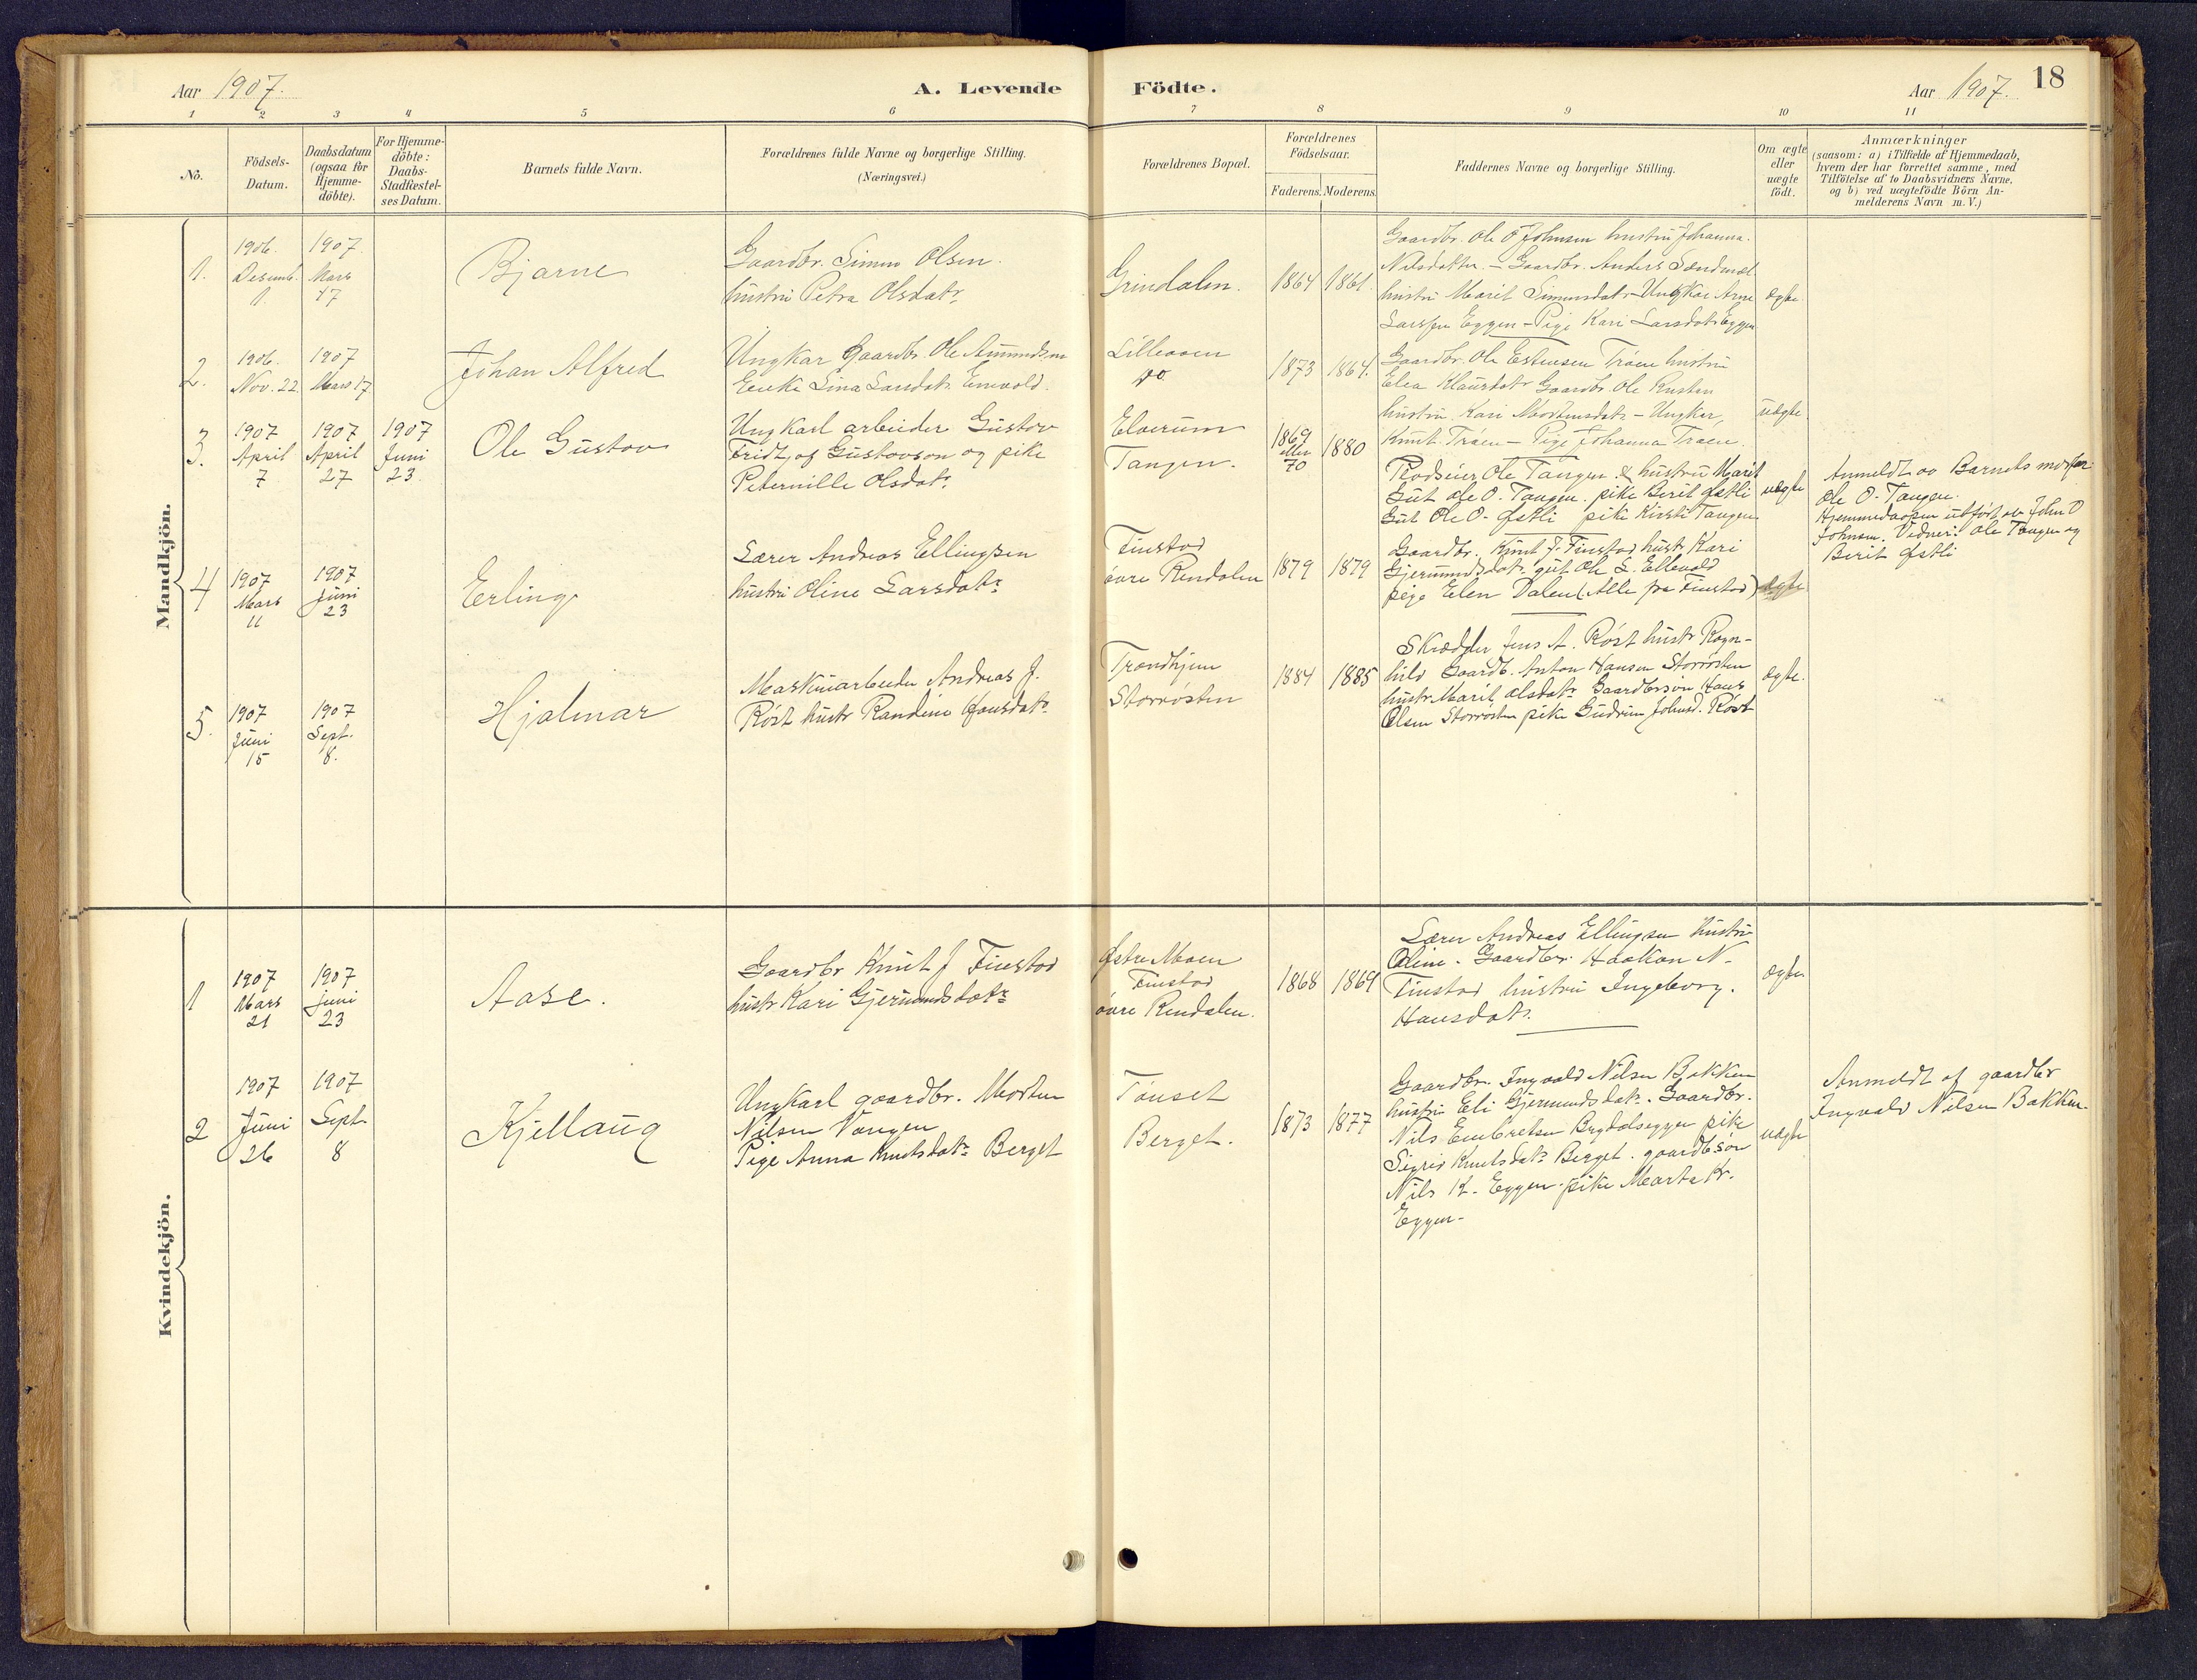 Aar 1907. A. Levende Födte. Aar 1907. 18
1 2 3 4 5 6 7 8 9 10 11
No.
Födsels-
Datum.
Daabsdatum
(ogsaa for
Hjemme-
döbte).
For Hjemme-
döbte:
Daabs-
Stadfæstel-
ses Datum.
Barnets fulde Navn.
Forældrenes fulde Navne og borgerlige Stilling.
(Næringsvei.)
Forældrenes Bopæl.
Forældrenes
Födselsaar.
Faderens. Moderens.
Faddernes Navne og borgerlige Stilling.
Om ægte
eller
uægte
födt.
Anmærkninger
(saasom: a) i Tilfælde af Hjemmedaab,
hvem der har forrettet samme, med
Tilföielse af to Daabsvidners Navne,
og b) ved uægtefödte Börn An-
melderens Navn m. V.)
Mandkjön.
1.
1906.
Desemb.
1.
1907
Mars
17
Bjarne
Gaardbr. Simen Olsen.
hustru Petra Olsdatr
Grindalen.
1864 1861.
Gaardbr. Ole O Johnsen hustru Johanna.
Nilsdatter. – Gaardbr. Anders Sandmæl
hustru Marit Simensdatr – Ungkar Arne
Larssen Eggen – Pige Kari Larsdatr Eggen
ægte
2.
1906.
Nov. 22.
1907
Mars 17
Johan Alfred
Ungkar Gaardbr. Ole Amundsen
Enke Lina Larsdatr
Lilleaaen
do.
1873 1864.
Gaardbr. Ole Estensen Tröen hustru
Elea Klausdatr Gaardbr. Ole Knutsen
hustru Kari Mortensdatr – Ungkar,
Knut Tröen – Pige Johanna Tröen.
uægte.
3.
1907
April
7
1907
April
27
1907
Juni
23.
Ole Gustav
Ungkarl arbeider Gustav
Fridtjof Gustavson og pike
Peternille Olsdatr
Elverum
Tangen.
1869
eller
70
1880
Rodseier Ole Tangen & hustru Marit
Gut Ole O. Tangen. pike Berit Østli
Gut Ole O. Østli pike Kirsti Tangen
uægte
Anmeldt av Barnets morfar
Ole O. Tangen.
Hjemmedaapen utført av John O
Johnsen. Vidner: Ole Tangen og
Berit Østli
4
1907
Mars
11
1907
Juni
23
Erling
Lærer Andreas Ellingsen
hustru Oline Larsdatr
Finstad
övre Rendalen
1879 1879
Gaardbr. Knut J. Finstad hustr Kari
Gjermundsdatr gut Ole L. Ellevold
pige Elen Dalen (Alle fra Finstad)
ægte
5.
1907
Juni
15
1907
Sept.
8.
Hjalmar
Maskinarbeider Andreas J.
Röst hustr Randine Hansdatr
Trondhjem
Storrösten
1884 1885
Skrædder Jens A. Röst hustr Ragn-
hild Gaardb. Anton Hansen Storrösten
hustr. Marit Olsdatr Gaardbrsön Hans
Olsen Storrösten pike Gudrun Johnsd. Röst
ægte.
Kvindekjön.
1
1907
Mars
21
1907
Juni
23
Aase.
Gaardbr Knut J Finstad
hustr Kari Gjermundsdatr
Østre Moen
Finstad
övre Rendalen.
1868 1869
Lærer Andreas Ellingsen hustru
Oline. Gaardbr. Haakon N.
Finstad hustru Ingeborg.
Hansdatr.
ægte
2
1907
Juni
26
1907
Sept
8
Kjellaug
Ungkarl gaardbr. Morten
Nilsen Vangen
Pige Anna Knutsdatr Berget
Tönset
Berget.
1873 1877
Gaardbr. Ingvald Nilsen Bakken
hustru Eli Gjermundsdatr. Gaardbr.
Nils Embretsen Brydalseggen pike
Sigrid Knutsdatr Berget. gaardbsön
Nils K. Eggen. pike Marta Kr.
Eggen.
uægte
Anmeldt af gaardbr
Ingvald Nilsen Bakken.